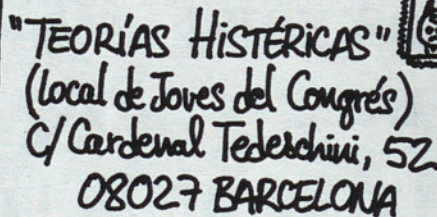 "TEORÍAS HISTÉRICAS"
(Local de Joves del Congrés)
C/ Cardenal Tedeschini, 52
08027 BARCELONA